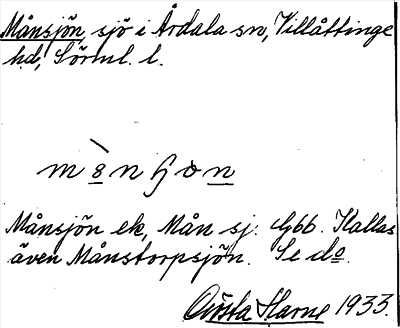 Månsjön, sjö i Årdala sn, Villåttinge
hd, Sörml. l.
Månsjön ek, Mån sj. Gbb. Kallas
även Månstorpsjön. Se do.
Gösta Harne 1933.